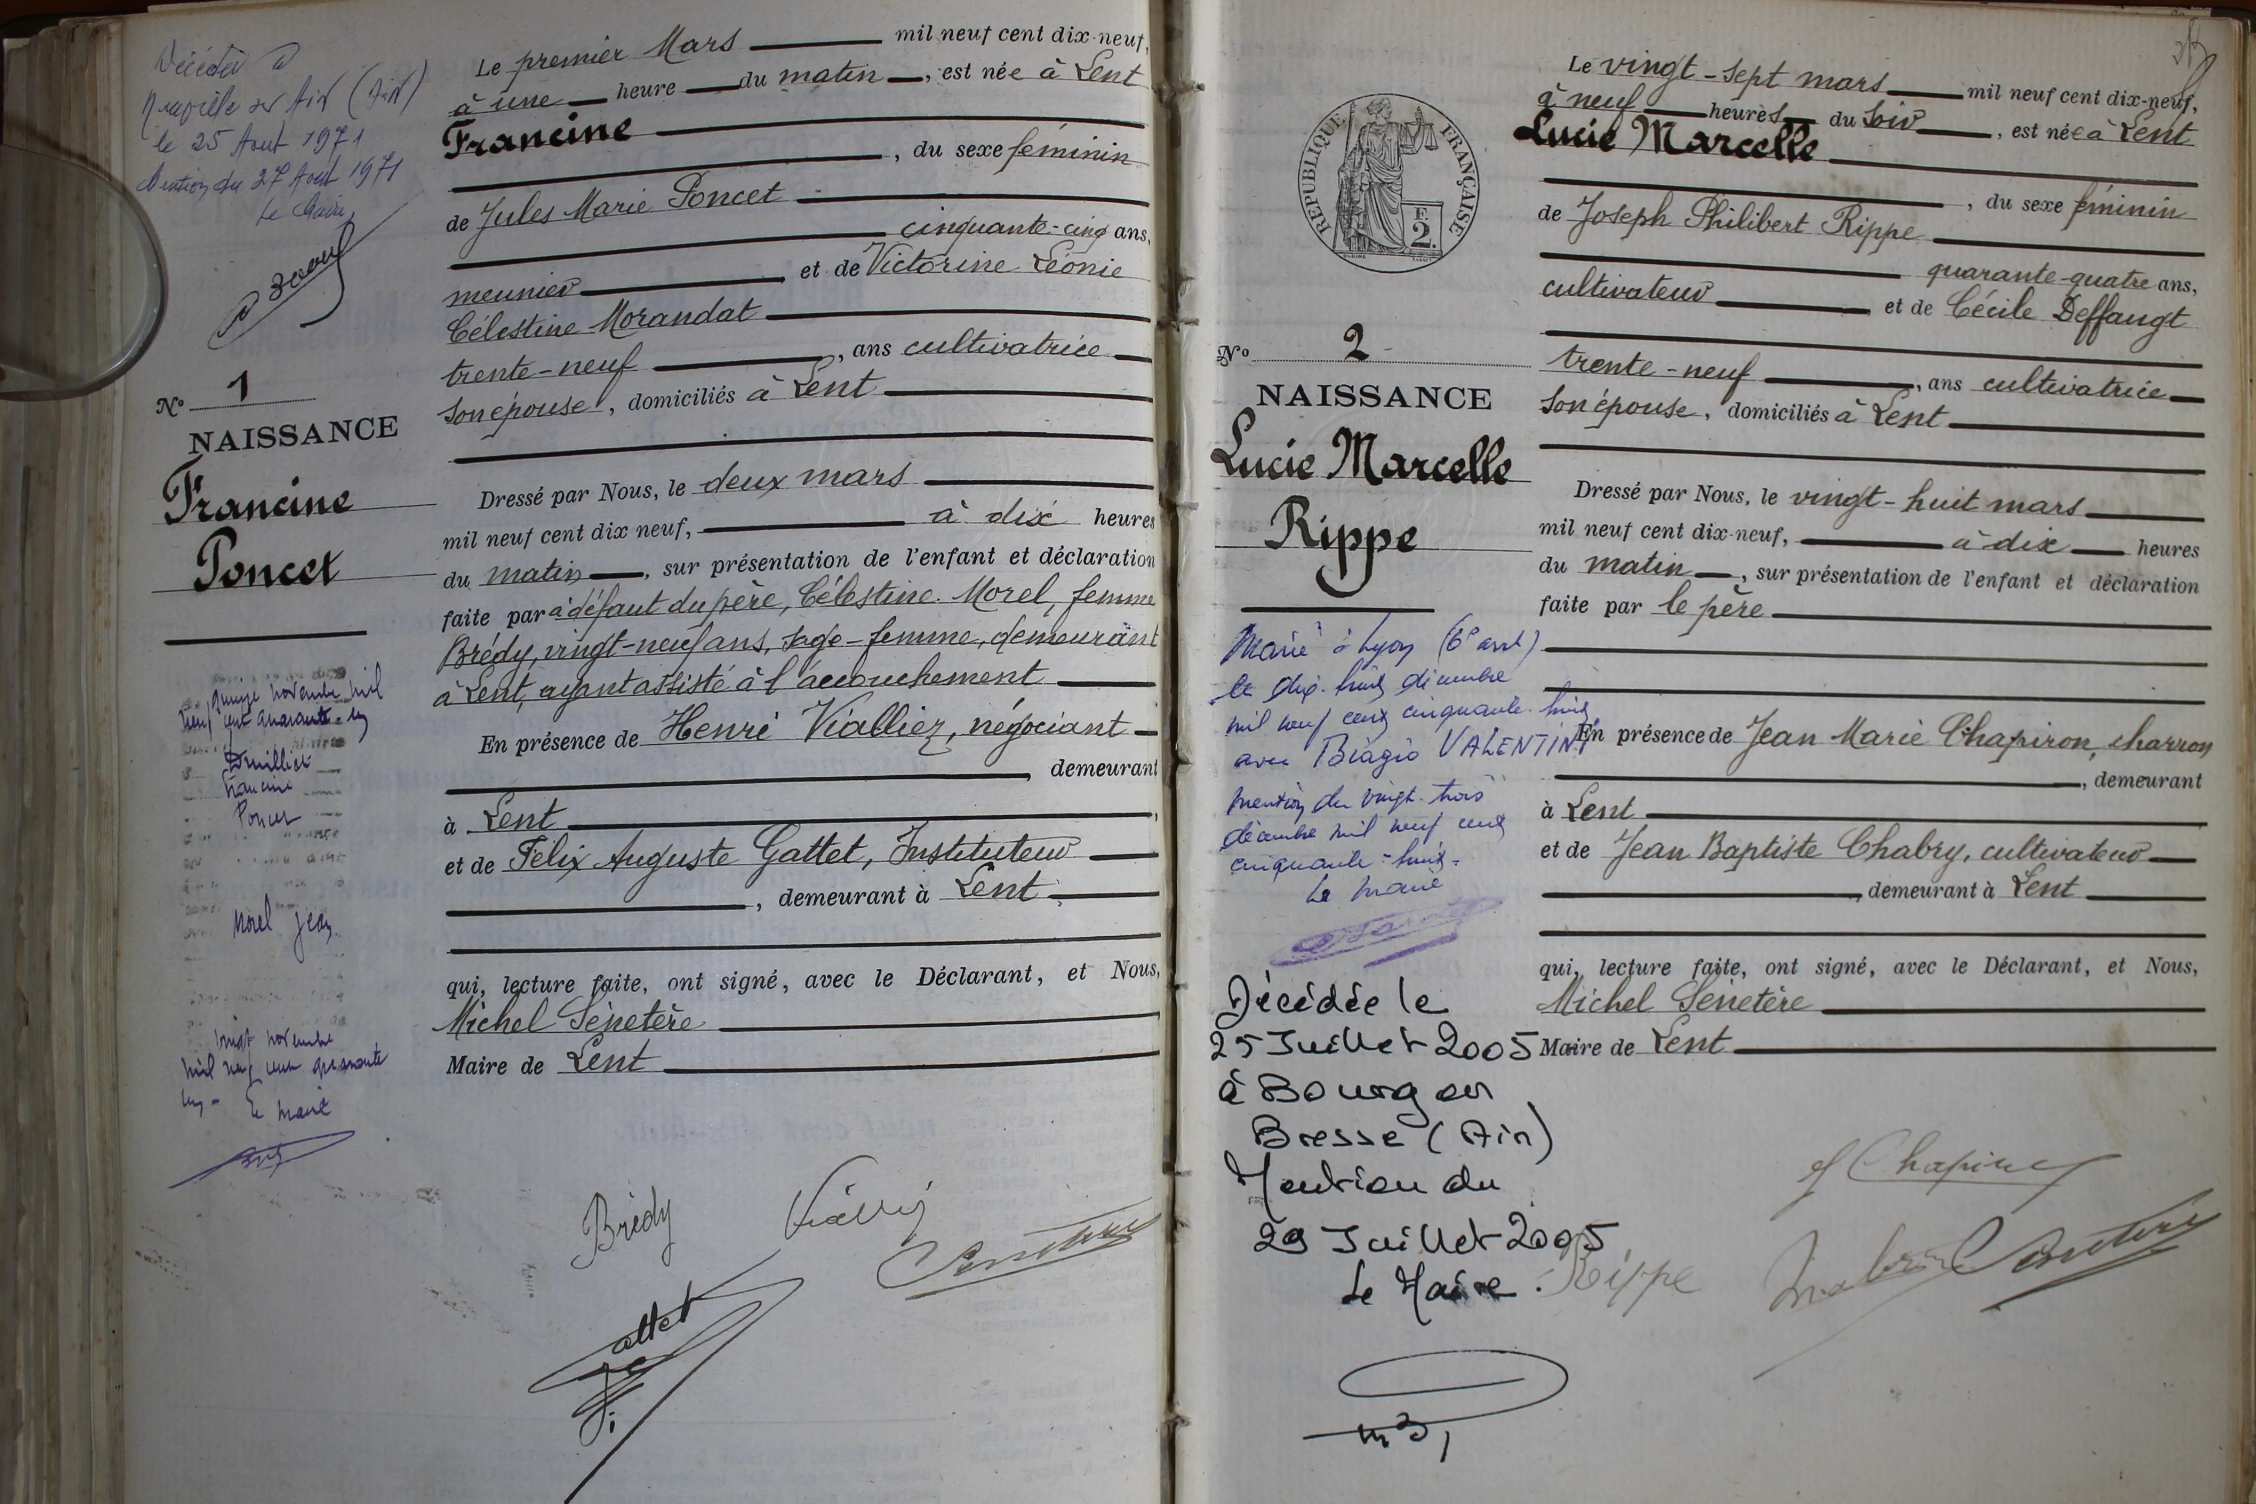 Décédée à
sur Ain (Ain)
le 25 Août 1971
Mention du 27 Août 1971
Le Maire,
N° 1
NAISSANCE
Francine
Poncet
quinze novembre mil
neuf cent quarante-un
Francine
Poncet
Morel Jean
vingt novembre
mil neuf cent quarante
un - Le Maire
Le premier Mars mil neuf cent dix-neuf,
à une heure du matin, est née à Lent
Francine
, du sexe féminin
de Jules Marie Poncet
cinquante-cinq ans,
meunier et de Victorine Léonie
Célestine Morandat
trente-neuf, ans cultivatrice
son épouse, domiciliés à Lent
Dressé par Nous, le deux mars
mil neuf cent dix neuf, à dix heures
du matin, sur présentation de l'enfant et déclaration
faite par à défaut du père, Célestine Morel, femme
Brédy, vingt-neuf ans, sage-femme, demeurant
à Lent, ayant assisté à l'accouchement
En présence de Henri Viallier, négociant
, demeurant
à Lent
et de Félix Auguste Gattet, Instituteur
, demeurant à Lent
qui, lecture faite, ont signé, avec le Déclarant, et Nous,
Michel Sénetère
Maire de Lent
Brédy
Gattet
REPUBLIQUE FRANÇAISE
F.
2.
N° 2
NAISSANCE
Lucie Marcelle
Rippe
Mariée à Lyon (6e arrt)
le dix-huit décembre
mil neuf cent cinquante-huit
avec Biagio VALENTINI
mention du vingt-trois
décembre mil neuf cent
cinquante-huit-
Le Maire
Décédée le
25 Juillet 2005
à Bourg en
Bresse (Ain)
Mention du
29 Juillet 2005
Le Maire
Le vingt-sept mars mil neuf cent dix-neuf,
à neuf heures du soir, est née à Lent
Lucie Marcelle
, du sexe féminin
de Joseph Philibert Rippe
quarante-quatre ans,
cultivateur et de Cécile Deffaugt
trente-neuf, ans cultivatrice
son épouse, domiciliés à Lent
Dressé par Nous, le vingt-huit mars
mil neuf cent dix-neuf, à dix heures
du matin, sur présentation de l'enfant et déclaration
faite par le père
En présence de Jean Marie Chapiron, charron
, demeurant
à Lent
et de Jean Baptiste Chabry, cultivateur
, demeurant à Lent
qui, lecture faite, ont signé, avec le Déclarant, et Nous,
Michel Sénetère
Maire de Lent
Rippe